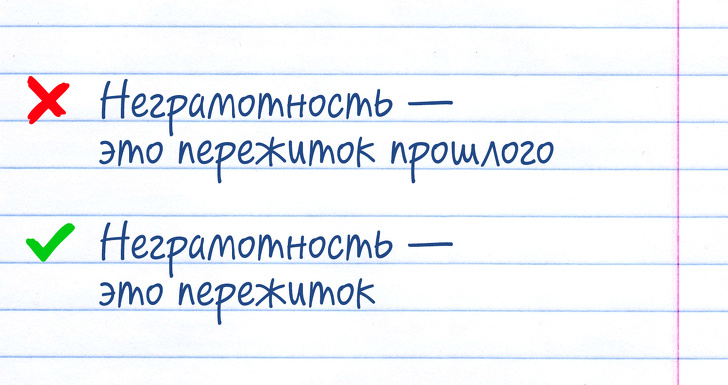 Неграмотность —
это пережиток прошлого
Неграмотность —
это пережиток